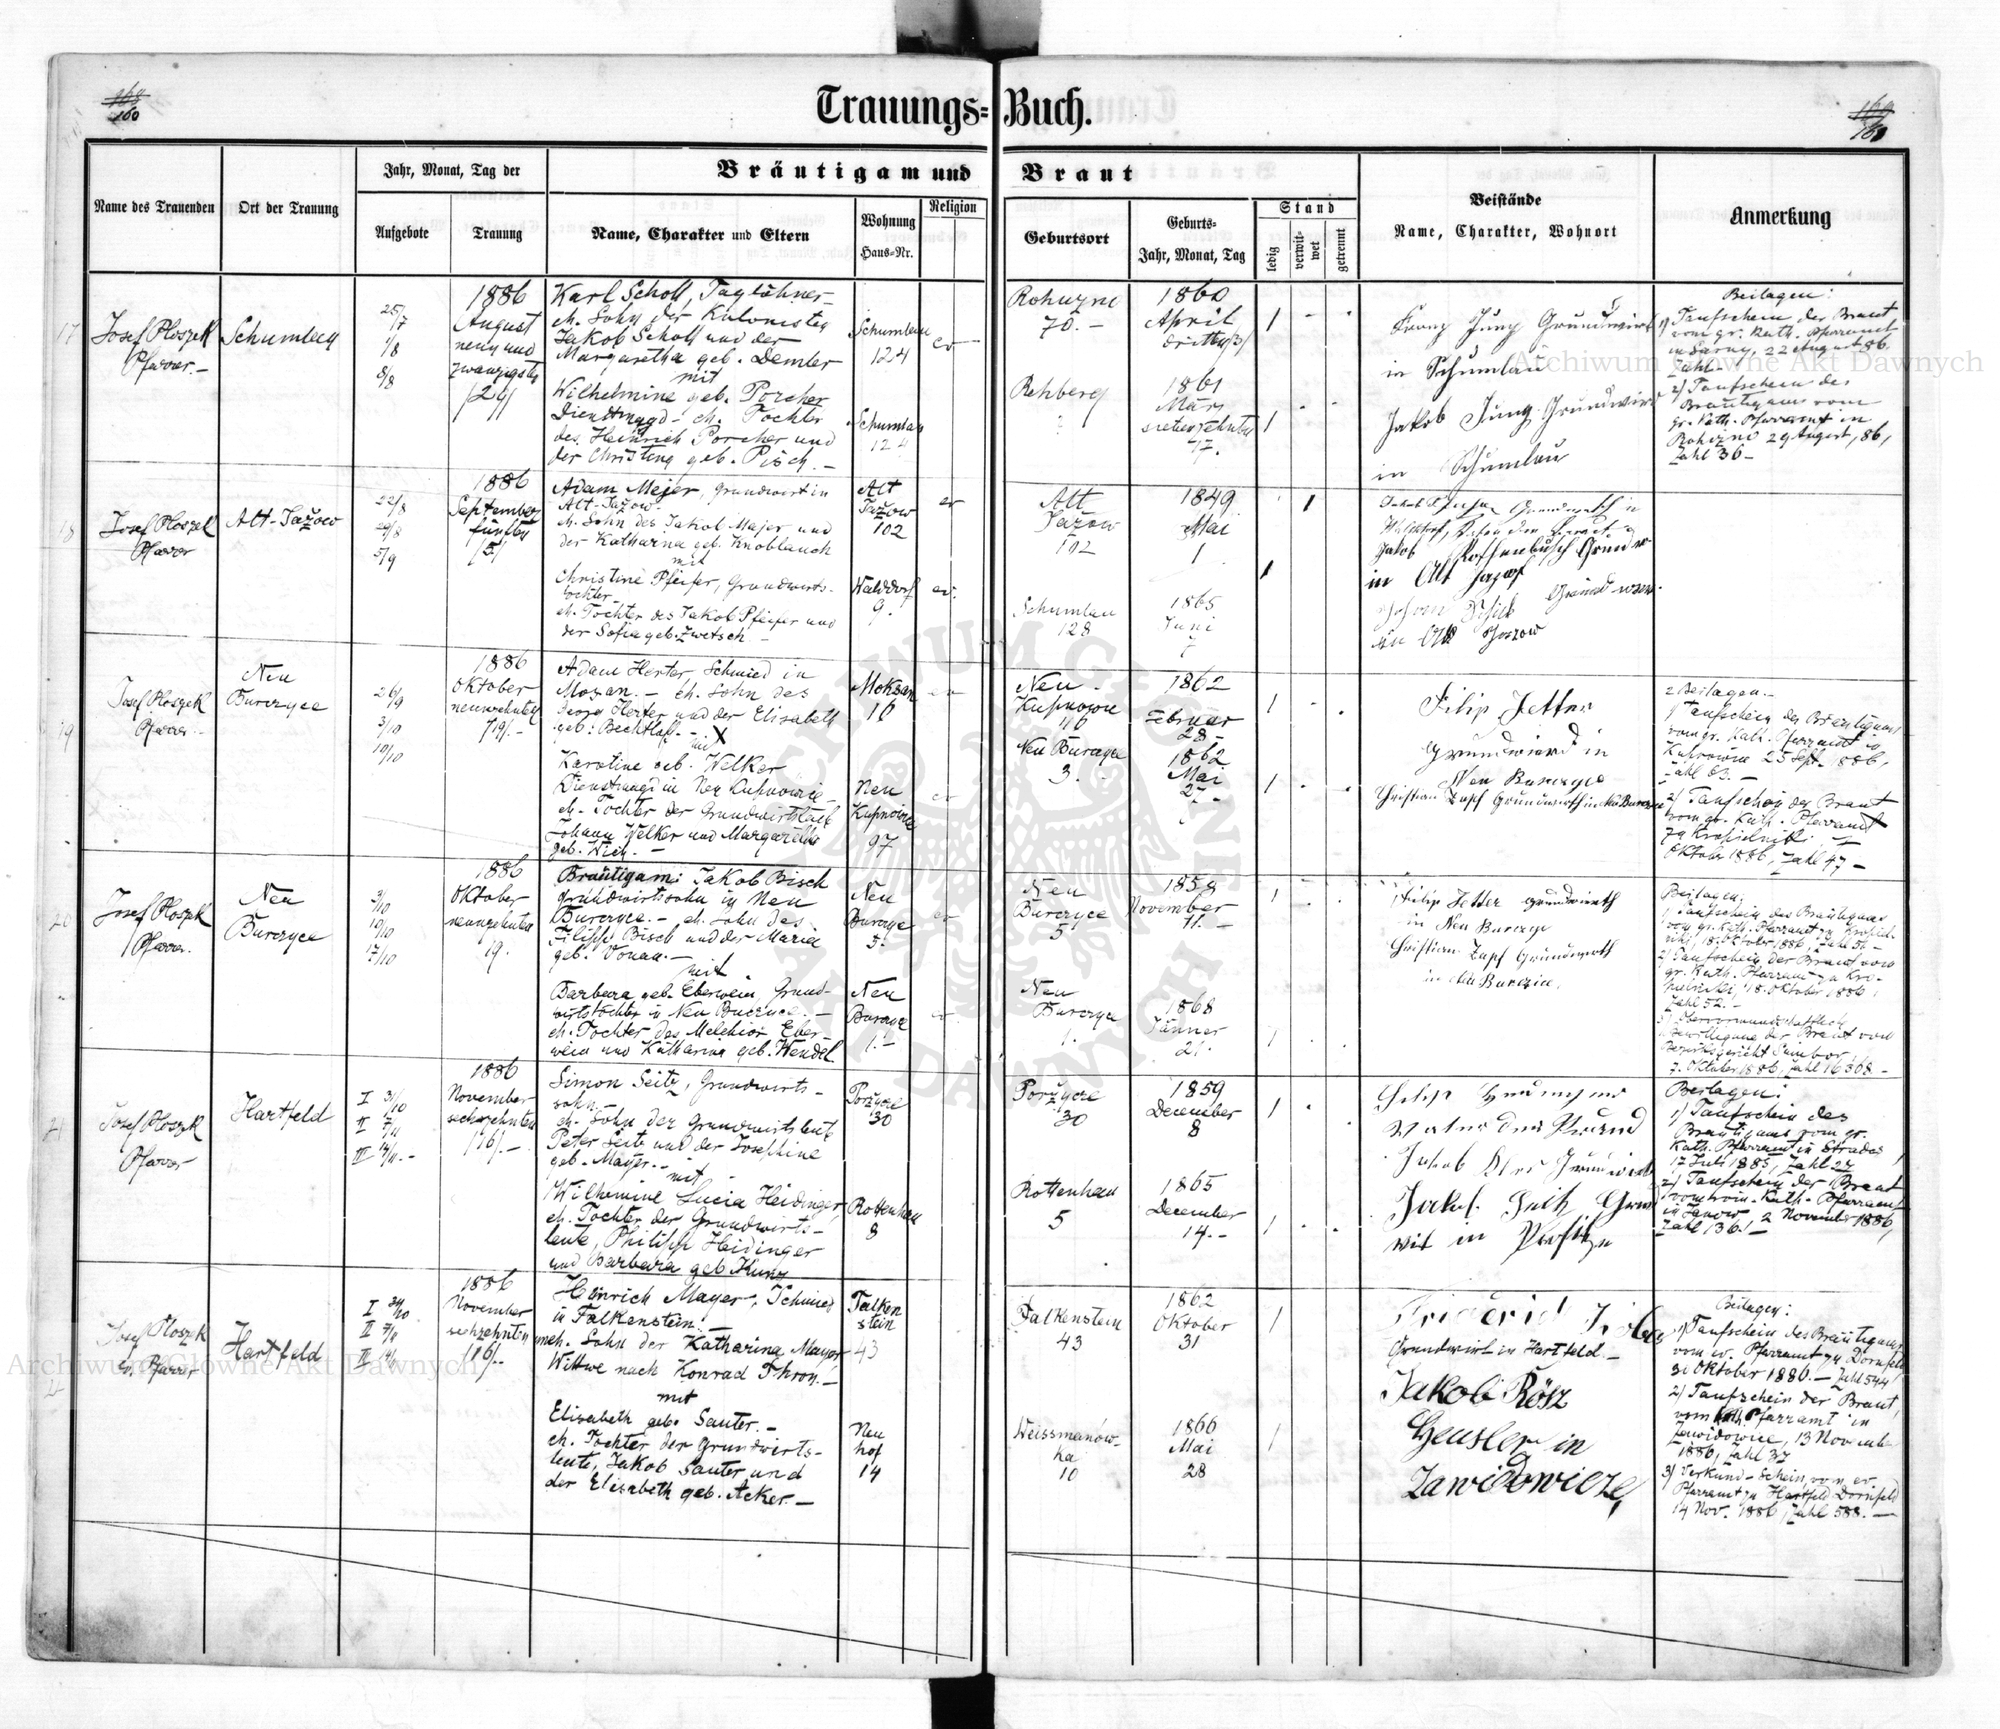 168
160
Trauungs=Buch.
169
161
Name des Trauenden
Ort der Trauung
Jahr, Monat, Tag der
Aufgebote
Trauung
Bräutigam und Braut
Name, Charakter und Eltern
Wohnung
Haus=Nr.
Religion
Geburtsort
Geburts=
Jahr, Monat, Tag
Stand
ledig
verwit=
wet
getrennt
Beistände
Name, Charakter, Wohnort
Anmerkung
17
Josef Ploszek
Pfarrer.-
Schumlau
25/7
1/8
8/8
1886
August
neun und
zwanzigsten
/29/
Karl Scholl, Taglöhner-
eh. Sohn der Kolonisten
Jakob Scholl und der
Margaretha geb. Demler
mit
Wilhelmine geb. Porcher
Dienstmagd - eh. Tochter
des Heinrich Porcher und
der Christina geb. Pisch. -
Schumlau
124
ev
Schumlau
124
Rohuzno
70. -
Rehberg
1860
April
dritten/3/
1861
März
siebenzehnten
17.
Franz Jung Grundwirt
in Schumlau
Jakob Jung Grundwirt
in Schumlau
Beilagen:
1/ Taufschein der Braut
vom gr. Kath. Pfarramt
in Sarny, 22 August 86
Zahl -
2/ Taufschein des
Bräutigams vom
gr. Kath. Pfarramt in
Rohuzno 29 August, 86,
Zahl 36 -
18
Josef Ploszek
Pfarrer
Alt-Jažow
22/8
29/8
5/9
1886
September
fünften
/5/
Adam Mejer, Grundwirt in
Alt-Jažow.
eh. Sohn des Jakob Majer und
der Katharina geb. Knoblauch
mit
Christine Pfeifer, Grundwirts-
tochter
eh. Tochter des Jakob Pfeifer und
der Sofia geb. Zwetsch. -
Alt
Jažow
102
ev
Walddorf
9.
ev.
Alt
Jažow
102
Schumlau
128
1849
Mai
1
1865
Juni
in Alt Jazow
in Alt Jazow
19
Josef Ploszek
Pfarrer
Neu
Burczyce
26/9
3/10
10/10
1886
Oktober
neunzehnten
/19/. -
Adam Herter Schmied in
Mozan. - eh. Sohn des
Georg Herter und der Elisabeth
geb. Bechtloff. -
mit
Karoline geb. Welker
Dienstmagd in Neu Kupnowice
eh. Tochter der Grundwirtsleute
Johann Welker und Margaretha
geb. Wich. -
Moksan
16
ev
Neu
Kupnowice
97
ev
Neu
Kupnowice
116
Neu Burczyce
3. -
1862
Februar
28 -
1862
Mai
27 -
Filip Jetter
Grundwirt in
Neu Burczyce
Christian Zapf Grundwirth in Neu Burczyce
2 Beilagen. -
1/ Taufschein des Bräutigams
vom gr. Kath. Pfarramt in
Kupnowice 25 Sept. 1886,
Zahl 63. -
2/ Taufschein der Braut
vom gr. Kath. Pfarramt
Oktober 1886, Zahl 47 -
20
Josef Ploszek
Pfarrer.
Neu
Burczyce
3/10
10/10
17/10
1886
Oktober
neunzehnten
19.
Bräutigam: Jakob Bisch
Grundwirtssohn in Neu
Burczyce. - eh. Sohn des
Filipp Bisch und der Maria
geb. Vonau. -
mit.
Barbara geb. Eberwein, Grund-
wirtstochter in Neu Burczyce. -
eh. Tochter des Melchior Eber-
wein und Katharina geb. Wendel.
Neu
Burczyce
5.
ev
Neu
Burczyce
1. -
ev
Neu
Burczyce
5
Neu
Burczyce
1.
1858
November
11. -
1868
Jänner
21.
Philip Jetter grundwirth
in Neu Burczyce
Christian Zapf Grundwirth
in Neu Burczice.
Beilagen:
1/ Taufschein des Bräutigams
vom gr. Kath. Pfarramt zu Kropiel-
niki, 18. Oktober 1886, Zahl 51 -
2/ Taufschein der Braut vom
gr. Kath. Pfarramt zu Kro-
pielniki, 18. Oktober 1886,
Zahl 52. -
3/ Obervormundschaftliche
Bewilligung der Braut vom
Bezirksgericht Sambor,
7. Oktober 1886, Zahl 16308 -
21
Josef Ploszek
Pfarrer
Hartfeld
I 31/10
II 7/11
III 14/11. -
1886
November
sechzehnten
/16/. -
Simon Seitz, Grundwirts-
sohn -
eh. Sohn der Grundwirtsleute
Peter Seitz und der Josephine
geb. Mayer. -
mit
Wilhemine Lucia Heidinger,
eh. Tochter der Grundwirts-
leute, Philipp Heidinger
und Barbara geb. Kunz
Poržycze
30
Rottenhan
8
Poržycze
30
Rottenhan
5
1859
December
8
1865
December
14. -
Vater der Braut
Jakob
Jakob Seitz Grund
wirt in
Beilagen:
1/ Taufschein des
Bräutigams vom gr.
Kath. Pfarramt in Stradcz,
17 Juli 1885, Zahl 27
2/ Taufschein der Braut
vom röm. Kath. Pfarramt
in Janow, 2 November 1886,
Zahl 136. -
Josef Ploszek
Pfarrer
Hartfeld
I 31/10
II 7/11
III 14/11
1886
November
sechzehnten
/16/. -
Heinrich Mayer, Schmied
in Falkenstein. -
uneh. Sohn der Katharina Mayer
Wittwe nach Konrad Thron. -
mit
Elisabeth geb. Sauter. -
eh. Tochter der Grundwirts-
leute, Jakob Sauter und
der Elisabeth geb. Acker. -
Falken
stein
43
Neu
hof
14
Falkenstein
43
Weissmanów-
ka
10
1862
Oktober
31
1866
Mai
28
Friderich
Grundwirt in Hartfeld. -
Jakob Rösz
Heusler in
Zawidowicze,
Beilagen:
1/ Taufschein des Bräutigams
vom ev. Pfarramt zu Dornfeld
31 Oktober 1886. - Zahl 544,
2/ Taufschein der Braut,
vom Kath. Pfarramt in
Zawidowice, 13 November
1886, Zahl 37
3/ Verkünd-Schein vom ev.
Pfarramt zu Hartfeld Dornfeld
14 Nov. 1886, Zahl 588. -
Archiwum Główne Akt Dawnych
Archiwum Główne Akt Dawnych
ARCHIWUM GŁÓWNE AKT DAWNYCH